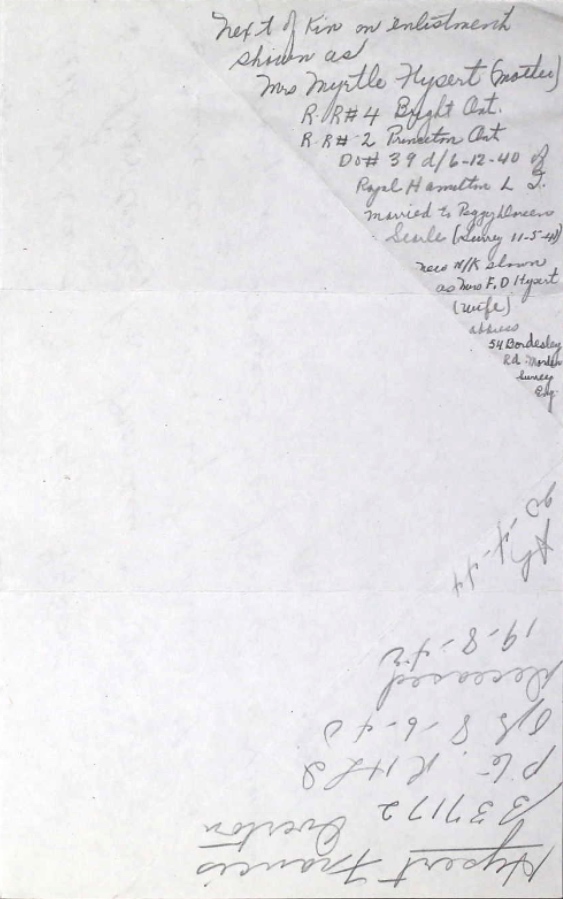 Next of Kin on enlistment
shown as
Mrs Myrtle Hysert (mother)
R.R#4 Bright Ont.
R.R#-2 Princeton Ont
DO# 39 d/6-12-40 of
Royal Hamilton L I.
married to Peggy Doreen
Searle (Surrey 11-5-41)
new N/K shown
as Mrs F.D Hysert
(wife)
address
54 Bordesley
Rd. Morden
Surrey
Eng.
Hysert Francis
Overton
B37172
Pte. RHLI
O/S 8-6-40
Deceased
19-8-42
-4-44